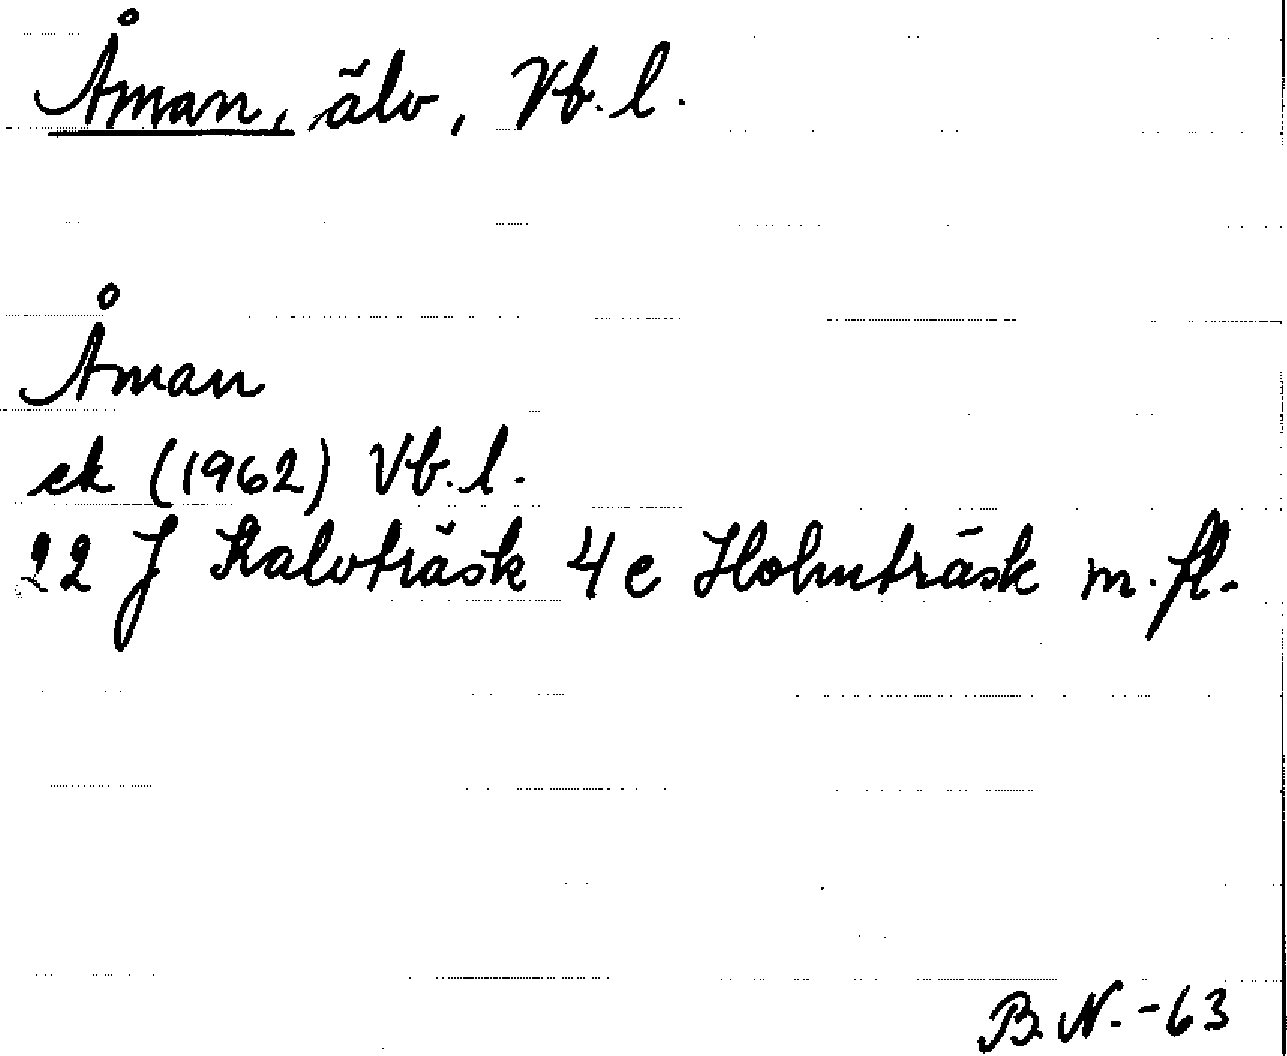 Åman, älv, Vb. l.
Åman
ek (1962) Vb. l.
22 J Kalvträsk 4e Holmträsk m. fl.
B. N. -63